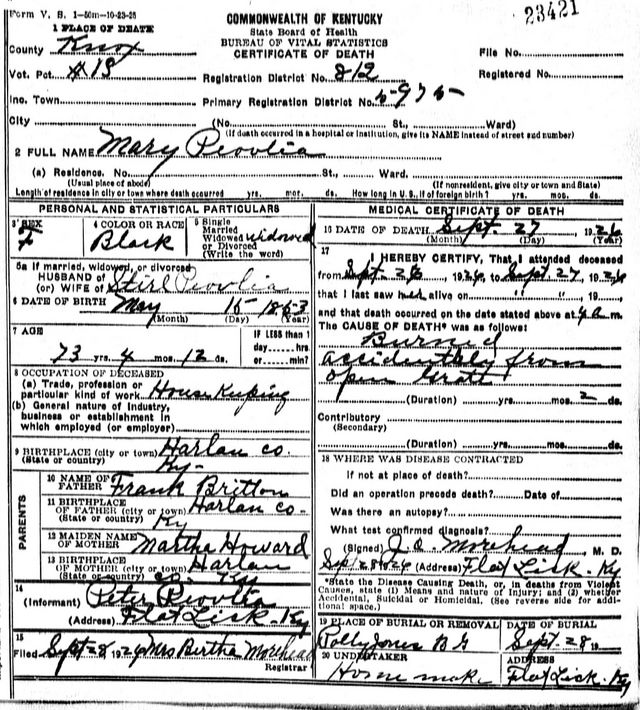 Form V. S. 1—50m—10-23-25
23421
COMMONWEALTH OF KENTUCKY
State Board of Health
BUREAU OF VITAL STATISTICS
CERTIFICATE OF DEATH
1 PLACE OF DEATH
County Knox
File No.
Vot. Pct. #19
Registration District No. 812
Registered No.
Inc. Town
Primary Registration District No.
City (No. St., Ward)
(If death occurred in a hospital or institution, give its NAME instead of street and number)
2 FULL NAME Mary Peovlia
(a) Residence. No. St., Ward.
(Usual place of abode) (If nonresident, give city or town and State)
Length of residence in city or town where death occurred yrs. mos. ds. How long in U. S., if of foreign birth? yrs. mos. ds.
PERSONAL AND STATISTICAL PARTICULARS
3 SEX F
4 COLOR OR RACE Black
5 Single
Married
Widowed Widowed
or Divorced
(Write the word)
5a If married, widowed, or divorced
HUSBAND of
(or) WIFE of Stirl Peovlia
6 DATE OF BIRTH May 15 1853
(Month) (Day) (Year)
7 AGE
73 yrs. 4 mos. 12 ds.
IF LESS than 1
day......hrs.
or......min?
8 OCCUPATION OF DECEASED
(a) Trade, profession or
particular kind of work House Keeping
(b) General nature of Industry,
business or establishment in
which employed (or employer)
9 BIRTHPLACE (city or town) Harlan co.
(State or country) Ky-
PARENTS
10 NAME OF
FATHER Frank Britton
11 BIRTHPLACE
OF FATHER (city or town) Harlan co-
(State or country) Ky
12 MAIDEN NAME
OF MOTHER Martha Howard
13 BIRTHPLACE
OF MOTHER (city or town) Harlan
(State or country) co. Ky
14
(Informant) Peter Peovlia
(Address) Flat Lick-Ky
15
Filed Sept 28 1926 Mrs Bertha Morehead
Registrar
MEDICAL CERTIFICATE OF DEATH
16 DATE OF DEATH Sept. 27, 1926
(Month) (Day) (Year)
17
I HEREBY CERTIFY, That I attended deceased
from Sept. 26, 1926, to Sept. 27, 1926
that I last saw alive on " " , 19
and that death occurred on the date stated above at m.
The CAUSE OF DEATH* was as follows:
Burned
accidentally from
open grate
(Duration) yrs. mos. 2 ds.
Contributory
(Secondary)
(Duration) yrs. mos. ds.
18 WHERE WAS DISEASE CONTRACTED
If not at place of death?
Did an operation precede death? Date of
Was there an autopsy?
What test confirmed diagnosis?
(Signed) Morehead, M. D.
Sept 28 1926 (Address) Flat Lick-Ky
*State the Disease Causing Death, or, in deaths from Violent
Causes, state (1) Means and nature of Injury; and (2) whether
Accidental, Suicidal or Homicidal. (See reverse side for addi-
tional space.)
19 PLACE OF BURIAL OR REMOVAL
Polly Jones B G
DATE OF BURIAL
Sept. 28 19
20 UNDERTAKER
Home make
ADDRESS
Flat Lick. Ky